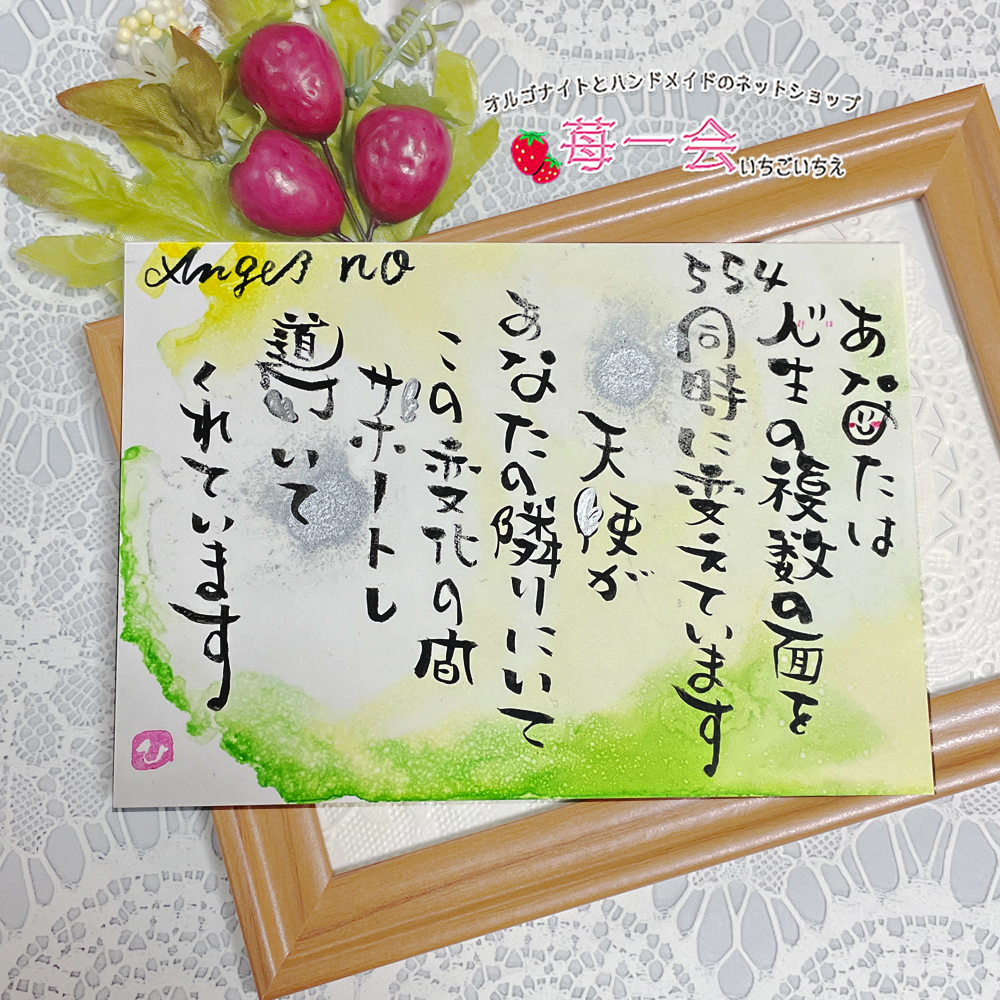 オルゴナイトとハンドメイドのネットショップ
苺一会いちごいちえ
Angel no 554
あなたは
人生の複数の面を
同時に変えています
天使が
あなたの隣りにいて
この変化の間
サポートし
導いて
くれています
ひ